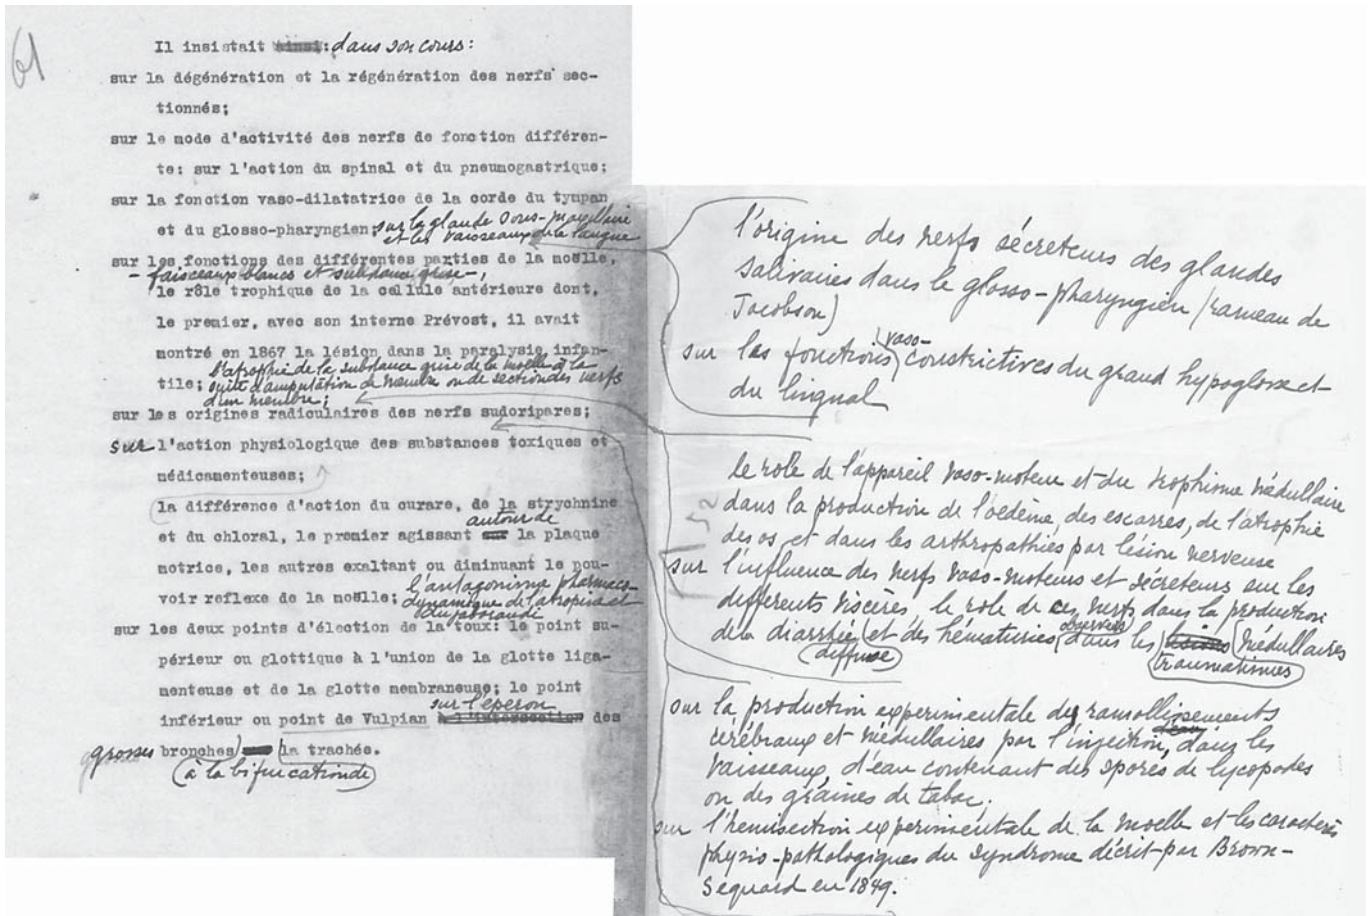 61
Il insistait ainsi: dans son cours:
sur la dégénération et la régénération des nerfs sec-
tionnés;
sur le mode d'activité des nerfs de fonction différen-
te: sur l'action du spinal et du pneumogastrique;
sur la fonction vaso-dilatatrice de la corde du tympan
et du glosso-pharyngien; sur la glande sous-maxillaire
et les vaisseaux de la langue
sur les fonctions des différentes parties de la moëlle,
- faisceaux blancs et substance grise -,
le rôle trophique de la cellule antérieure dont,
le premier, avec son interne Prévost, il avait
montré en 1867 la lésion dans la paralysie infan-
tile; l'atrophie de la substance grise de la moelle à la
suite d'amputation de membre ou de section des nerfs
d'un membre;
sur les origines radiculaires des nerfs sudoripares;
sur l'action physiologique des substances toxiques et
médicamenteuses;
la différence d'action du curare, de la strychnine
et du chloral, le premier agissant autour de la plaque
motrice, les autres exaltant ou diminuant le pou-
voir reflexe de la moëlle; l'antagonisme pharmaco-
dynamique de l'atropine et
du jaborandi
sur les deux points d'élection de la toux: le point su-
périeur ou glottique à l'union de la glotte liga-
menteuse et de la glotte membraneuse; le point
inférieur ou point de Vulpian sur l'éperon à l'intersection des
grosses bronches à la bifurcation de la trachée.
l'origine des nerfs sécreteurs des glandes
salivaires dans le glosso-pharyngien (rameau de
Jacobson)
sur les fonctions vaso-constrictives du grand hypoglosse et
du lingual
le role de l'appareil vaso-moteur et du trophisme médullaire
dans la production de l'oedème, des escarres, de l'atrophie
des os, et dans les arthropathies par lésion nerveuse
sur l'influence des nerfs vaso-moteurs et sécreteurs sur les
differents viscères le role de ces nerfs dans la production
de la diarrhée diffuse et des hématuries observées dans les traumatismes médullaires
sur la production experimentale des ramollissements
cérébraux et médullaires par l'injection, dans les
vaisseaux, d'eau contenant des spores de lycopodes
ou des graines de tabac;
sur l'hemisection experimentale de la moelle et les caractères
physio-pathologiques du syndrome décrit par Brown-
Sequard en 1849.